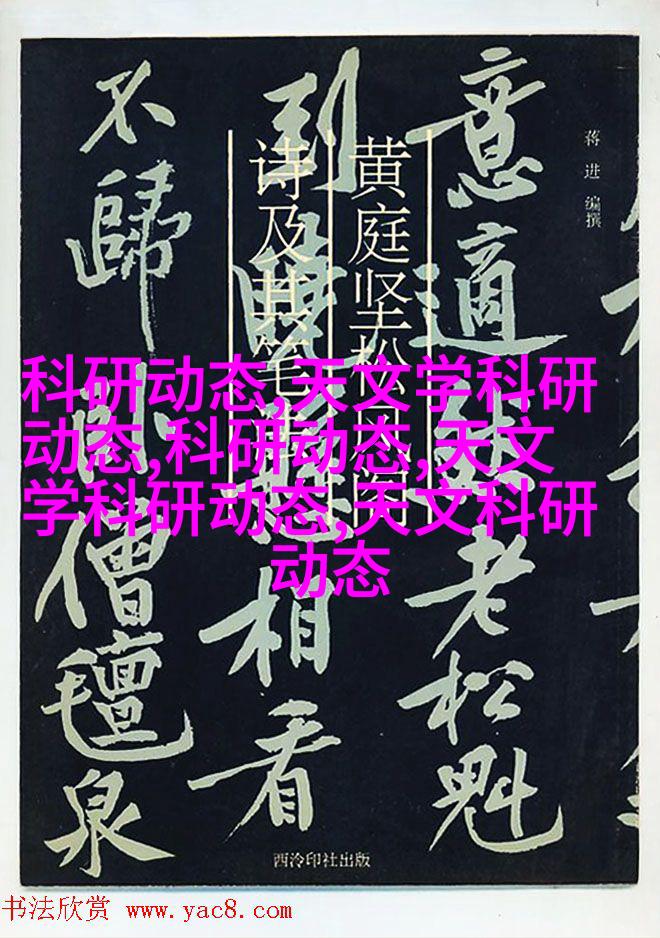 意適然老松魁
到眼
相看
不歸卧僧氊泉
黄庭坚松风阁
诗及其笔
蒋进编撰
科研动态,天文学科研
动态,科研动态,天文
学科研动态,天文科研
动态
西泠印社出版
书法欣赏 www.yac8.com